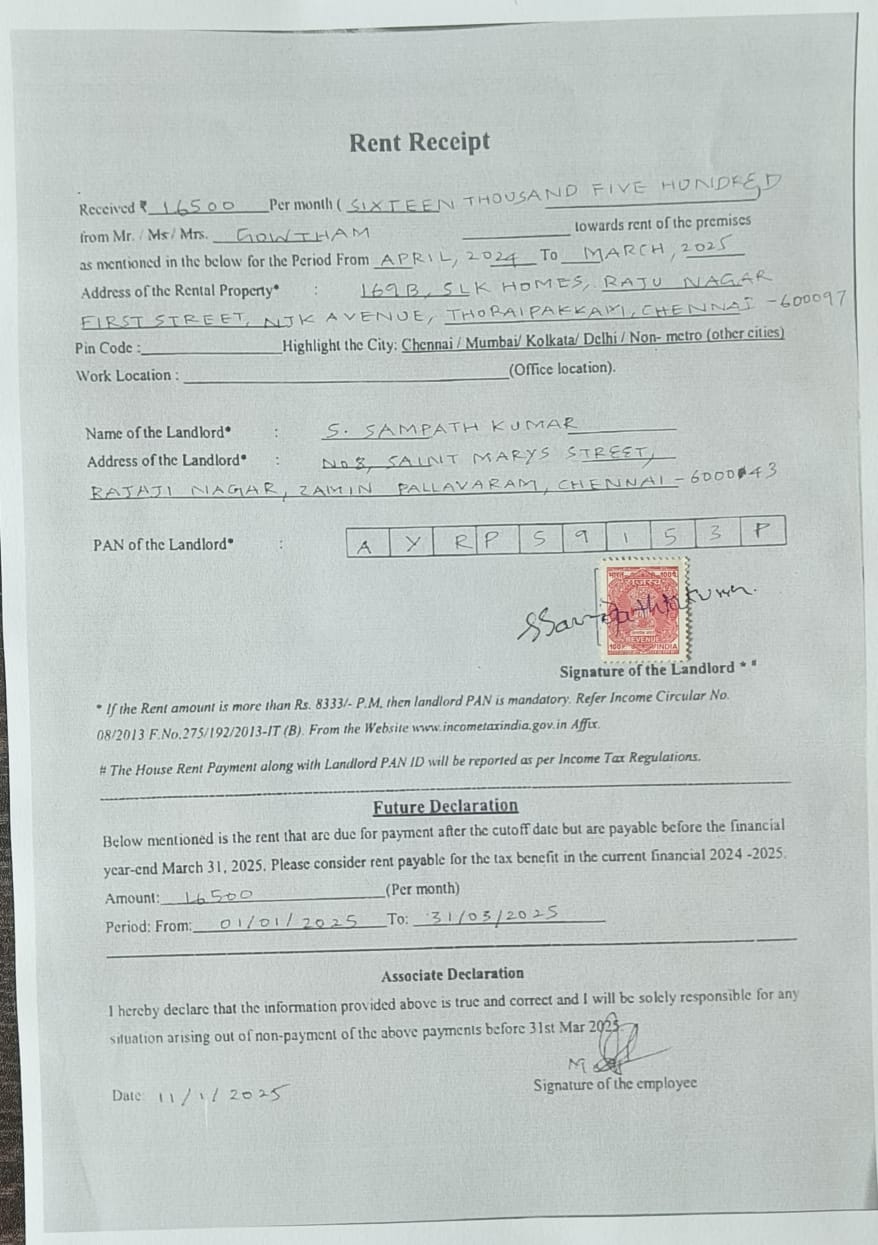 Rent Receipt
Received ₹ 16500 Per month ( SIXTEEN THOUSAND FIVE HUNDRED
from Mr. / Ms / Mrs. GOWTHAM towards rent of the premises
as mentioned in the below for the Period From APRIL, 2024 To MARCH, 2025
Address of the Rental Property* : 169B, SLK HOMES, RAJU NAGAR
FIRST STREET, NJK AVENUE, THORAIPAKKAM, CHENNAI - 600097
Pin Code : Highlight the City: Chennai / Mumbai/ Kolkata/ Delhi / Non- metro (other cities)
Work Location : (Office location).
Name of the Landlord* : S. SAMPATH KUMAR
Address of the Landlord* : NO 8, SAINT MARYS STREET,
RAJAJI NAGAR, ZAMIN PALLAVARAM, CHENNAI - 600043
PAN of the Landlord* : A Y R P S 9 1 5 3 P
भारत 100प
राजस्व
REVENUE
100P INDIA
Signature of the Landlord * #
* If the Rent amount is more than Rs. 8333/- P.M, then landlord PAN is mandatory. Refer Income Circular No.
08/2013 F.No.275/192/2013-IT (B). From the Website www.incometaxindia.gov.in Affix.
# The House Rent Payment along with Landlord PAN ID will be reported as per Income Tax Regulations.
Future Declaration
Below mentioned is the rent that are due for payment after the cutoff date but are payable before the financial
year-end March 31, 2025. Please consider rent payable for the tax benefit in the current financial 2024 -2025.
Amount: 16500 (Per month)
Period: From: 01/01/2025 To: 31/03/2025
Associate Declaration
I hereby declare that the information provided above is true and correct and I will be solely responsible for any
situation arising out of non-payment of the above payments before 31st Mar 2025
Date: 11/1/2025 Signature of the employee